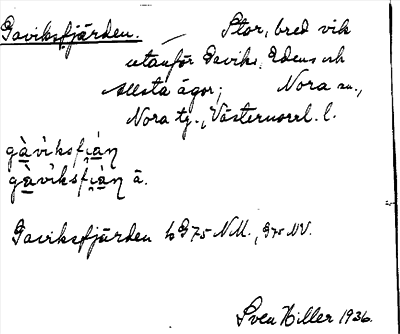 Gaviksfjärden. — Stor, bred vik
utanför Gaviks, Edens och
Allsta ägor; Nora sn.,
Nora tg., Västernorrl. l.
gàviksfjàṇ
gàviksfjàṇ ä.
Gaviksfjärden G 75 NM., G 75 NV.
Sven Hiller 1936.